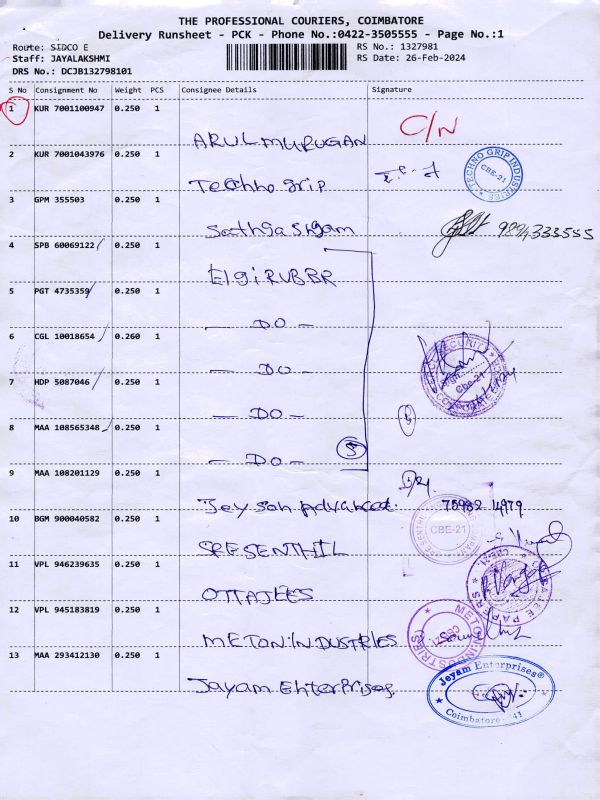 THE PROFESSIONAL COURIERS, COIMBATORE
Delivery Runsheet - PCK - Phone No.:0422-3505555 - Page No.:1
Route: SIDCO E RS No.: 1327981
Staff: JAYALAKSHMI RS Date: 26-Feb-2024
DRS No.: DCJB132798101
S No Consignment No Weight PCS Consignee Details Signature
1 KUR 7001100947 0.250 1 ARULMURUGAN C/N
2 KUR 7001043976 0.250 1 Techno grip TECHNO GRIP INDUSTRIES CBE-21
3 GPM 355503 0.250 1 9894333555
4 SPB 60069122 0.250 1 Elgi RUBBR
5 PGT 4735359 0.250 1 - DO -
6 CGL 10018654 0.260 1 - DO -
7 HDP 5087046 0.250 1 - DO - SECURITY Cbe-21
8 MAA 108565348 0.250 1 - DO - 5
9 MAA 108201129 0.250 1 Jayson Advanced. 75982 14979
10 BGM 900040582 0.250 1 SRESENTHIL CBE-21
11 VPL 946239635 0.250 1 OTTAJEES PAPERS CBE-21
12 VPL 945183819 0.250 1 METON INDUSTRIES METON INDUSTRIES CBE-21
13 MAA 293412130 0.250 1 Jayam Enterprises. Jeyam Enterprises® Coimbatore - 41